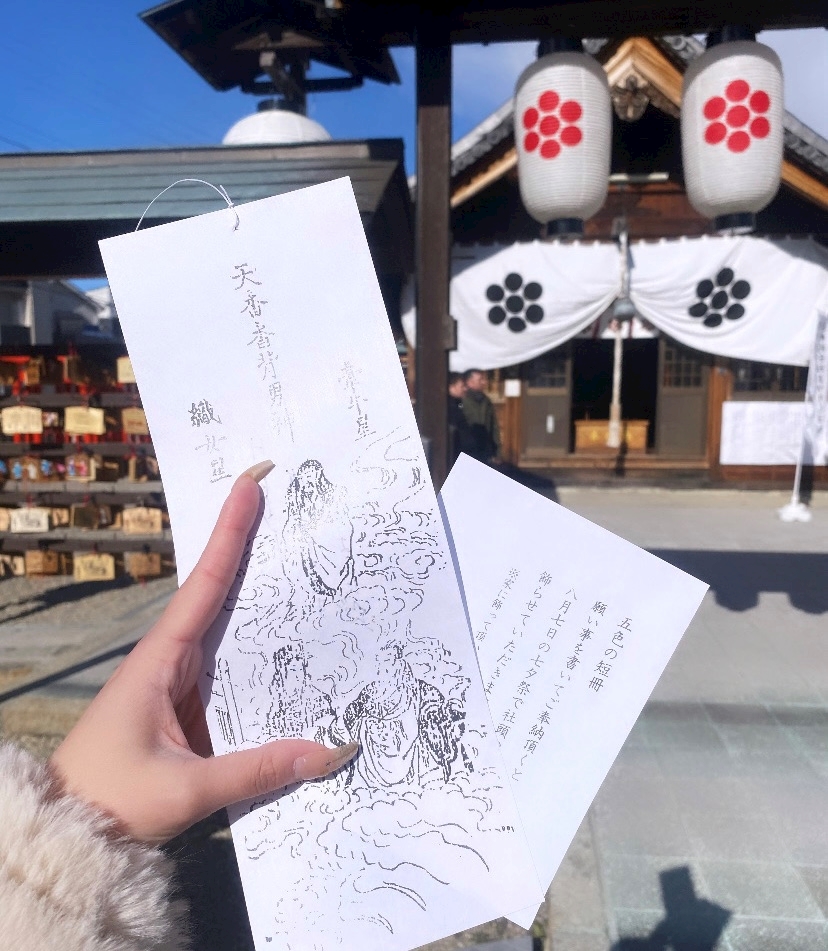 天香香背男神
牽牛星
織女星
五色の短冊
願い事を書いてご奉納頂くと
八月七日の七夕祭で社頭
飾らせていただきま